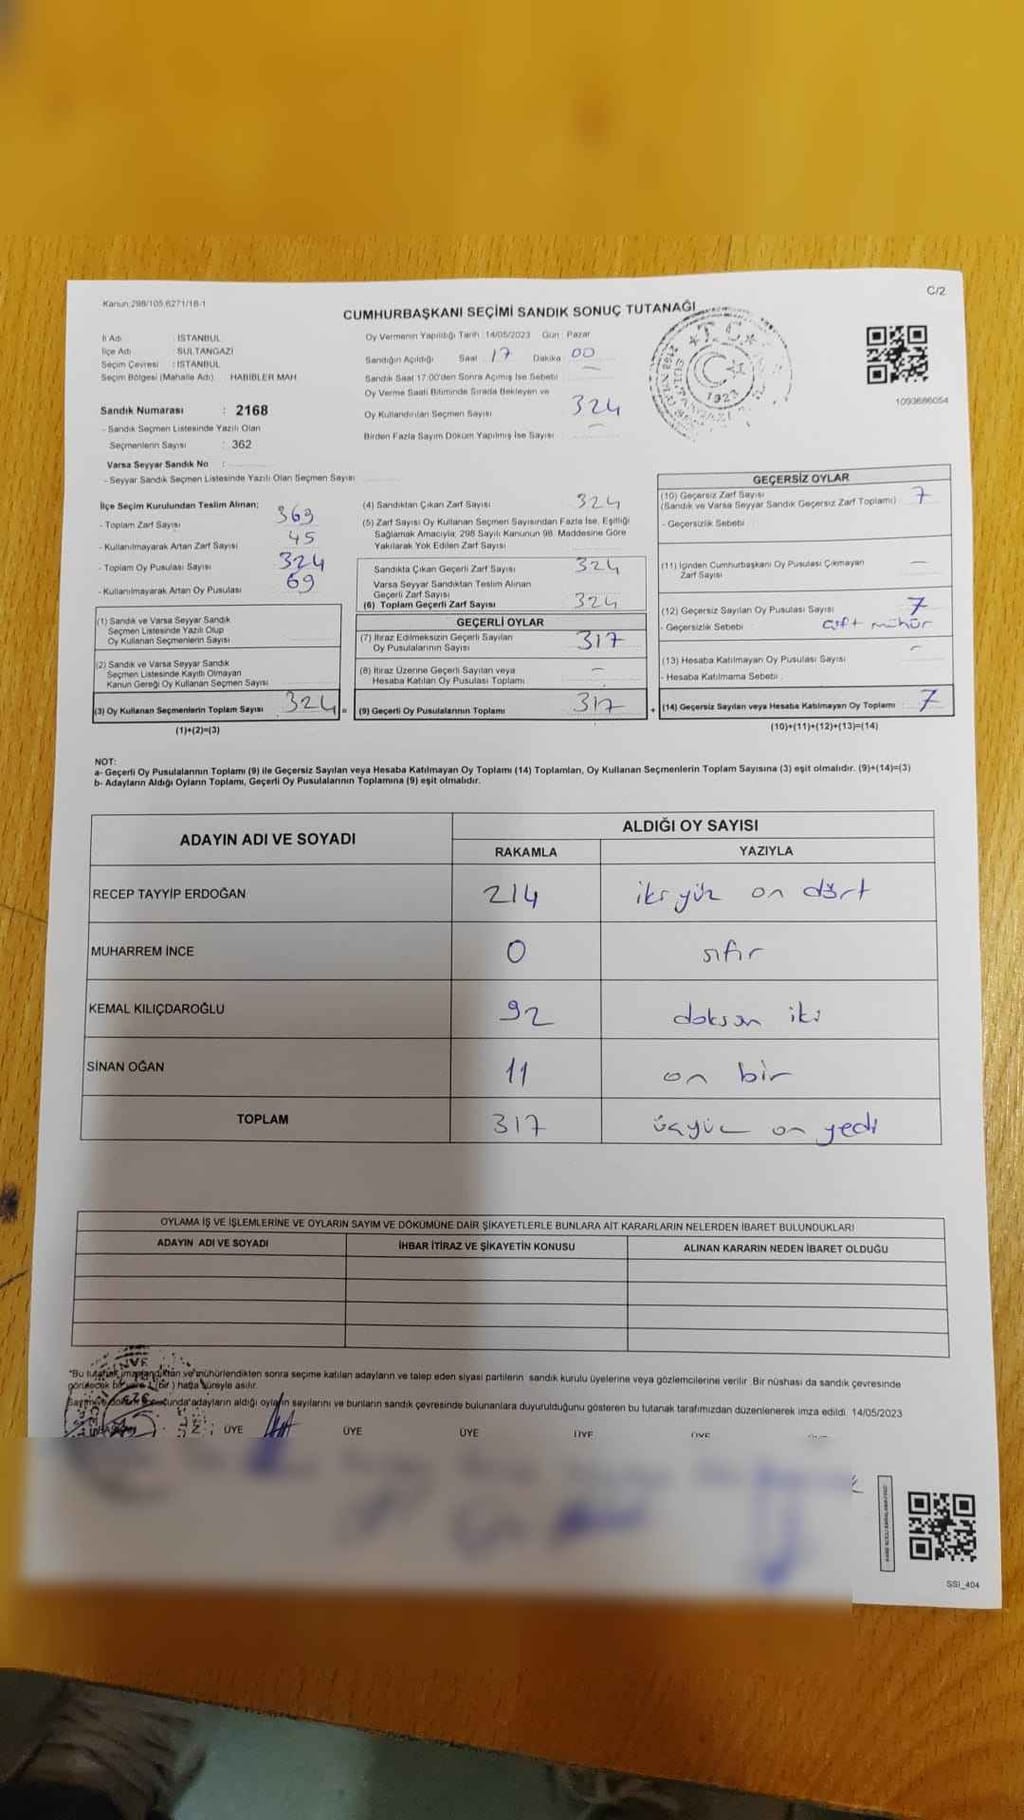 Kanun:298/105,6271/18-1
C/2
CUMHURBAŞKANI SEÇİMİ SANDIK SONUÇ TUTANAĞI
İl Adı : İSTANBUL
İlçe Adı : SULTANGAZİ
Seçim Çevresi : İSTANBUL
Seçim Bölgesi (Mahalle Adı) HABİBLER MAH
Sandık Numarası : 2168
- Sandık Seçmen Listesinde Yazılı Olan
Seçmenlerin Sayısı : 362
Varsa Seyyar Sandık No :
- Seyyar Sandık Seçmen Listesinde Yazılı Olan Seçmen Sayısı
Oy Vermenin Yapıldığı Tarih :14/05/2023 Gün : Pazar
Sandığın Açıldığı Saat 17 Dakika 00
Sandık Saat 17:00'den Sonra Açılmış İse Sebebi
Oy Verme Saati Bitiminde Sırada Bekleyen ve
Oy Kullandırılan Seçmen Sayısı 324
Birden Fazla Sayım Döküm Yapılmış İse Sayısı –
T.C.
1923
1093686054
İlçe Seçim Kurulundan Teslim Alınan;
- Toplam Zarf Sayısı 369
- Kullanılmayarak Artan Zarf Sayısı 45
- Toplam Oy Pusulası Sayısı 324
- Kullanılmayarak Artan Oy Pusulası 69
(1) Sandık ve Varsa Seyyar Sandık
Seçmen Listesinde Yazılı Olup
Oy Kullanan Seçmenlerin Sayısı
(2) Sandık ve Varsa Seyyar Sandık
Seçmen Listesinde Kayıtlı Olmayan
Kanun Gereği Oy Kullanan Seçmen Sayısı
(3) Oy Kullanan Seçmenlerin Toplam Sayısı 324 =
(1)+(2)=(3)
(4) Sandıktan Çıkan Zarf Sayısı 324
(5) Zarf Sayısı Oy Kullanan Seçmen Sayısından Fazla İse, Eşitliği
Sağlamak Amacıyla; 298 Sayılı Kanunun 98. Maddesine Göre
Yakılarak Yok Edilen Zarf Sayısı
Sandıkta Çıkan Geçerli Zarf Sayısı 324
Varsa Seyyar Sandıktan Teslim Alınan
Geçerli Zarf Sayısı
(6) Toplam Geçerli Zarf Sayısı 324
GEÇERLİ OYLAR
(7) İtiraz Edilmeksizin Geçerli Sayılan
Oy Pusulalarının Sayısı 317
(8) İtiraz Üzerine Geçerli Sayılan veya
Hesaba Katılan Oy Pusulası Toplamı –
(9) Geçerli Oy Pusulalarının Toplamı 317 +
GEÇERSİZ OYLAR
(10) Geçersiz Zarf Sayısı
(Sandık ve Varsa Seyyar Sandık Geçersiz Zarf Toplamı) 7
- Geçersizlik Sebebi
(11) İçinden Cumhurbaşkanı Oy Pusulası Çıkmayan
Zarf Sayısı –
(12) Geçersiz Sayılan Oy Pusulası Sayısı 7
- Geçersizlik Sebebi çift mühür
(13) Hesaba Katılmayan Oy Pusulası Sayısı –
- Hesaba Katılmama Sebebi
(14) Geçersiz Sayılan veya Hesaba Katılmayan Oy Toplamı 7
(10)+(11)+(12)+(13)=(14)
NOT:
a- Geçerli Oy Pusulalarının Toplamı (9) ile Geçersiz Sayılan veya Hesaba Katılmayan Oy Toplamı (14) Toplamları, Oy Kullanan Seçmenlerin Toplam Sayısına (3) eşit olmalıdır. (9)+(14)=(3)
b- Adayların Aldığı Oyların Toplamı, Geçerli Oy Pusulalarının Toplamına (9) eşit olmalıdır.
ADAYIN ADI VE SOYADI
ALDIĞI OY SAYISI
RAKAMLA YAZIYLA
RECEP TAYYİP ERDOĞAN 214 iki yüz on dört
MUHARREM İNCE 0 sıfır
KEMAL KILIÇDAROĞLU 92 doksan iki
SİNAN OĞAN 11 on bir
TOPLAM 317 üçyüz on yedi
OYLAMA İŞ VE İŞLEMLERİNE VE OYLARIN SAYIM VE DÖKÜMÜNE DAİR ŞİKAYETLERLE BUNLARA AİT KARARLARIN NELERDEN İBARET BULUNDUKLARI
ADAYIN ADI VE SOYADI İHBAR İTİRAZ VE ŞİKAYETİN KONUSU ALINAN KARARIN NEDEN İBARET OLDUĞU
*Bu tutanak imzalandıktan ve mühürlendikten sonra seçime katılan adayların ve talep eden siyasi partilerin sandık kurulu üyelerine veya gözlemcilerine verilir. Bir nüshası da sandık çevresinde
görülecek bir yere 1 (bir) hafta süreyle asılır.
adayların aldığı oyların sayılarını ve bunların sandık çevresinde bulunanlara duyurulduğunu gösteren bu tutanak tarafımızdan düzenlenerek imza edildi. 14/05/2023
ÜYE ÜYE ÜYE ÜYE ÜYE
SSI_404